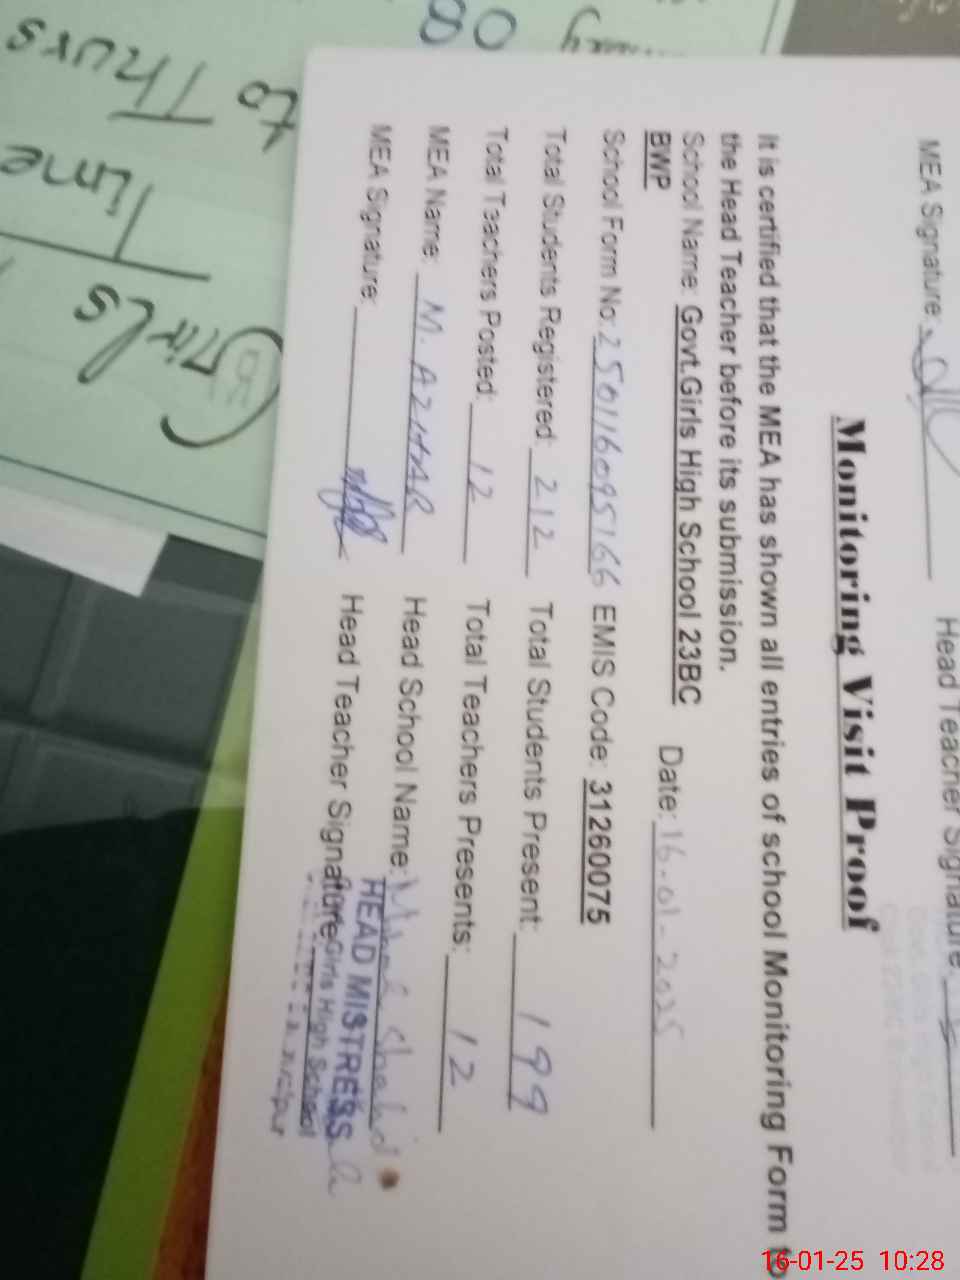 MEA Signature: Head Teacher Signature:
Monitoring Visit Proof
It is certified that the MEA has shown all entries of school Monitoring Form to
the Head Teacher before its submission.
School Name: Govt.Girls High School 23BC Date: 16-01-2025
BWP
School Form No: 25011609S166 EMIS Code: 31260075
Total Students Registered: 212 Total Students Present: 199
Total Taachers Posted: 12 Total Teachers Presents: 12
MEA Name: M. AZHAR Head School Name: Shahid
MEA Signature: Head Teacher Signature:
HEAD MISTRESS
Girls High School
08
to Thurs
Time
Girls
16-01-25 10:28